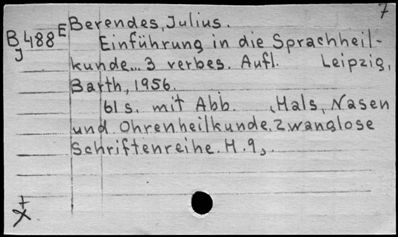 7
B 488 E Berendes, Julius.
J Einführung in die Sprachheil-
kunde... 3 verbes. Aufl. Leipzig,
Barth, 1956.
61 s. mit Abb. (Hals, Nasen
und Ohrenheilkunde. Zwanglose
Schriftenreihe. H. 9).